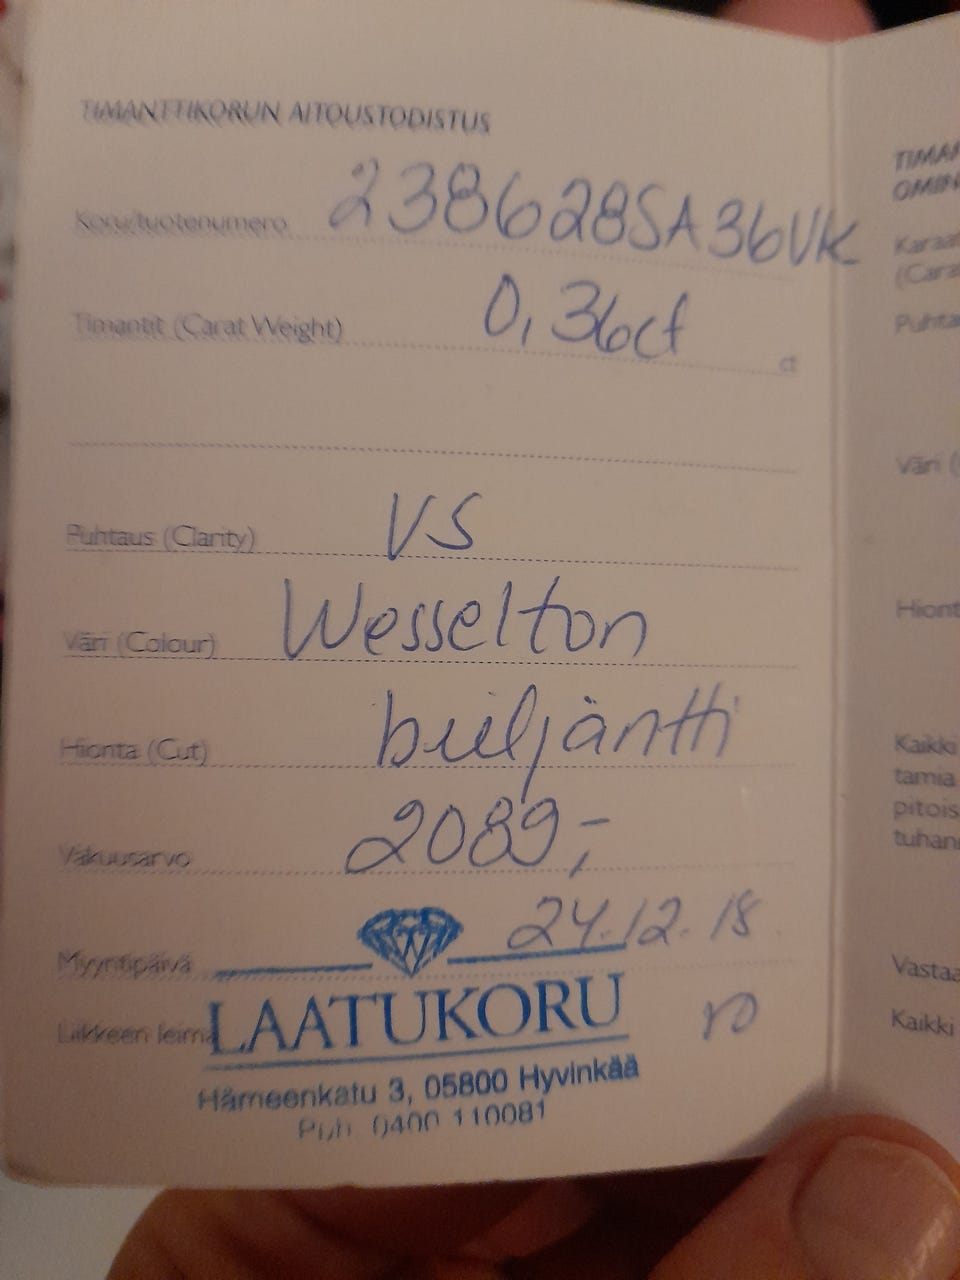 TIMANTTIKORUN AITOUSTODISTUS
Koru/tuotenumero 238628SA36VK
Timantit (Carat Weight) 0,36ct ct
Puhtaus (Clarity) VS
Väri (Colour) Wesselton
Hionta (Cut) briljantti
Vakuusarvo 2089,-
Myyntipäivä 24.12.18
Liikkeen leima LAATUKORU
Hämeenkatu 3, 05800 Hyvinkää
Puh. 0400 110081
TIMAN
OMIN
Karaat
(Cara
Puhta
Väri (
Hiont
Kaikki
tamia
pitois
tuhan
Vastaa
Kaikki